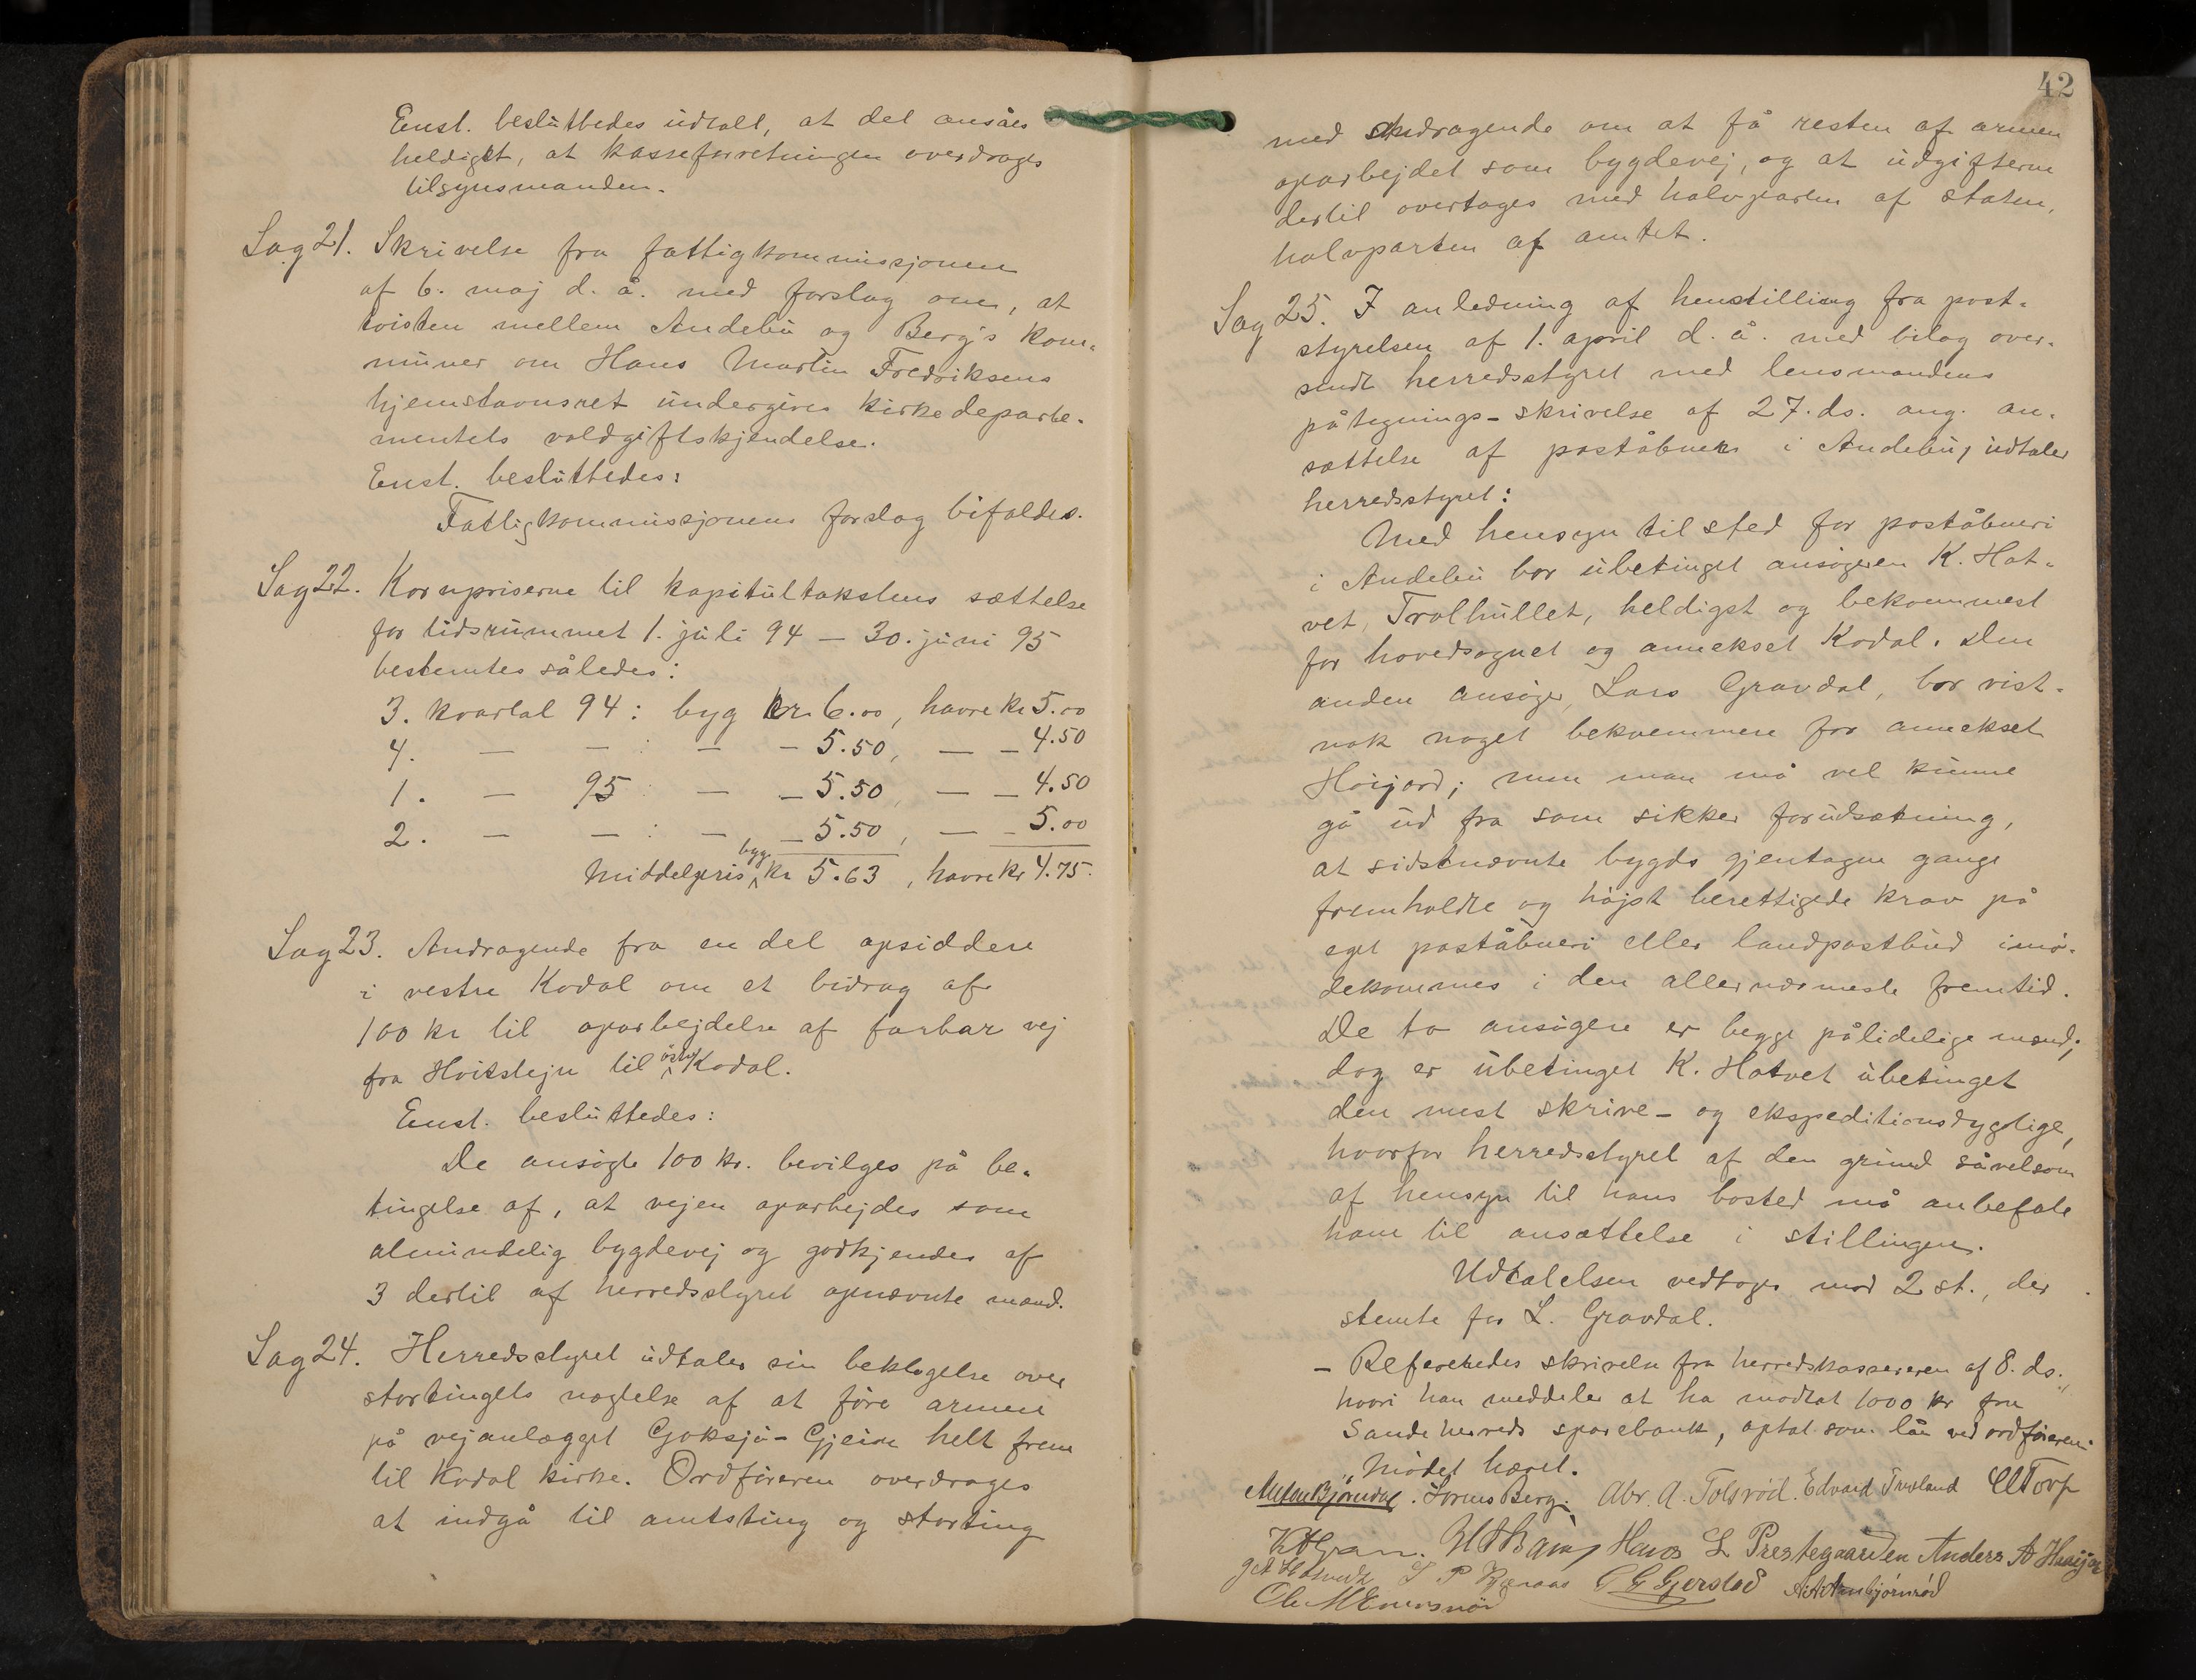 Enst. besluttedes udtalt, at det ansåes
heldigst, at kasseforretningen overdrages
tilsynsmanden.
Sag 21. Skrivelse fra fattigkommissjonen
af 6. maj d. å. med forslag om, at
tvisten mellem Andebu og Berg's kom-
muner om Hans Martin Fredriksens
hjemstavnsret undergives kirkedeparte-
mentets voldgiftskjendelse.
Enst. besluttedes:
Fattigkommissjonens forslag bifaldes.
Sag 22. Kornpriserne til kapitultakstens sættelse
for tidsrummet 1. juli 94 – 30. juni 95
bestemtes således:
3. kvartal 94: byg kr. 6.00, havre kr 5.00
4. — — : — – 5.50, — – 4.50
1. — 95 : — – 5.50, — – 4.50
2. — — : — – 5.50, — – 5.00
Middelpris byg kr 5.63, havre kr 4.75.
Sag 23. Andragende fra en del opsiddere
i vestre Kodal om et bidrag af
100 kr til oparbejdelse af farbar vej
fra Hvitstejn til østre Kodal.
Enst. besluttedes:
De ansøgte 100 kr. bevilges på be-
tingelse af, at vejen oparbejdes som
almindelig bygdevej og godkjendes af
3 dertil af herredsstyret opnævnte mænd.
Sag 24. Herredsstyret udtaler sin beklagelse over
stortingets nægtelse af at føre armen
på vejanlægget Goksjø – Gjein helt frem
til Kodal kirke. Ordføreren overdrages
at indgå til amtsting og storting
42
med andragende om at få resten af armen
oparbejdet som bygdevej, og at udgifterne
dertil overtages med halvparten af staten,
halvparten af amtet.
Sag 25. I anledning af henstilling fra post-
styrelsen af 1. april d. å. med bilag over-
sendt herredsstyret med lensmandens
påtegnings-skrivelse af 27. ds. ang. an-
sættelse af poståbner i Andebu, udtaler
herredsstyret:
Med hensyn til sted for poståbneri
i Andebu bor ubetinget ansøgeren K. Hot-
vet, Trolhullet, heldigst og bekvemmest
for hovedsognet og annekset Kodal. Den
anden ansøger, Lars Gravdal, bor vist-
nok noget bekvemmere for annekset
Høijord; men man må vel kunne
gå ud fra som sikker forudsætning,
at sidstnævnte bygds gjentagne gange
fremholdte og højst berettigede krav på
eget poståbneri eller landpostbud imø-
dekommes i den allernærmeste fremtid.
De to ansøgere er begge pålidelige mænd;
dog er ubetinget K. Hotvet ubetinget
den mest skrive- og ekspeditionsdygtige,
hvorfor herredsstyret af den grund såvelsom
af hensyn til hans bosted må anbefale
ham til ansættelse i stillingen.
Udtalelsen vedtoges mod 2 st., der
stemte for L. Gravdal.
– Refereredes skrivelse fra herredskassereren af 8. ds.,
hvori han meddeler at ha modtat 1000 kr fra
Sandeherreds sparebank, optat som lån ved ordføreren.
Mødet hævet.
Anton Bjørndal. Lorens Berg. Abr. A. Tolsrød. Edvard Trevland
Hans L Prestegaarden Anders A
G. Gjerstad